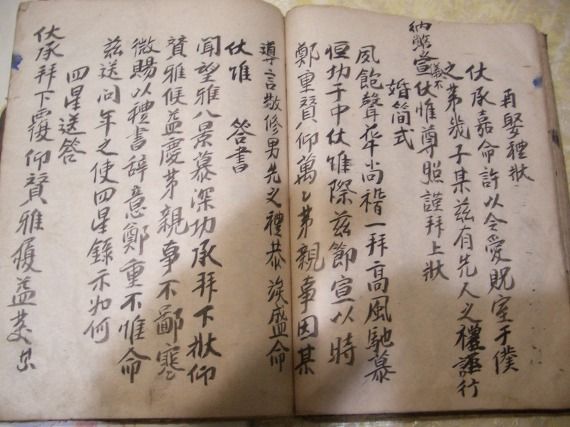 再娶禮狀
伏承嘉命許以令愛貺室于僕
之弟幾子某茲有先人之禮謹行
納幣宣
義不
伏惟尊照謹拜上狀
婚簡式
風飽聲華尚稽一拜高風馳慕
恒切于中伏惟際茲節宣以時
鄭重贊仰萬乙弟親事因某
導言敬修男先之禮恭俟盛命
伏惟 答書
聞望雅八景慕深切承拜下狀仰
贊雅候益慶弟親事不鄙寒
微賜以禮書辭意鄭重不惟命
茲送问年之使四星錄示如何
四星送答
伏承拜下覆仰贊雅履益